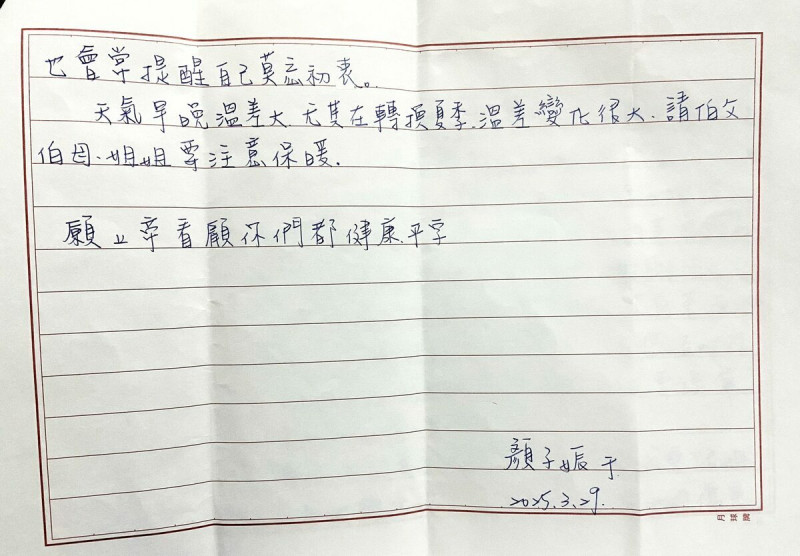 也會常提醒自己莫忘初衷。
天氣早晚溫差大.尤其在轉換夏季.溫差變化很大.請伯父
伯母、姐姐要注意保暖.
願上帝看顧你們都健康.平安
顏子娠 于
2025.3.29.